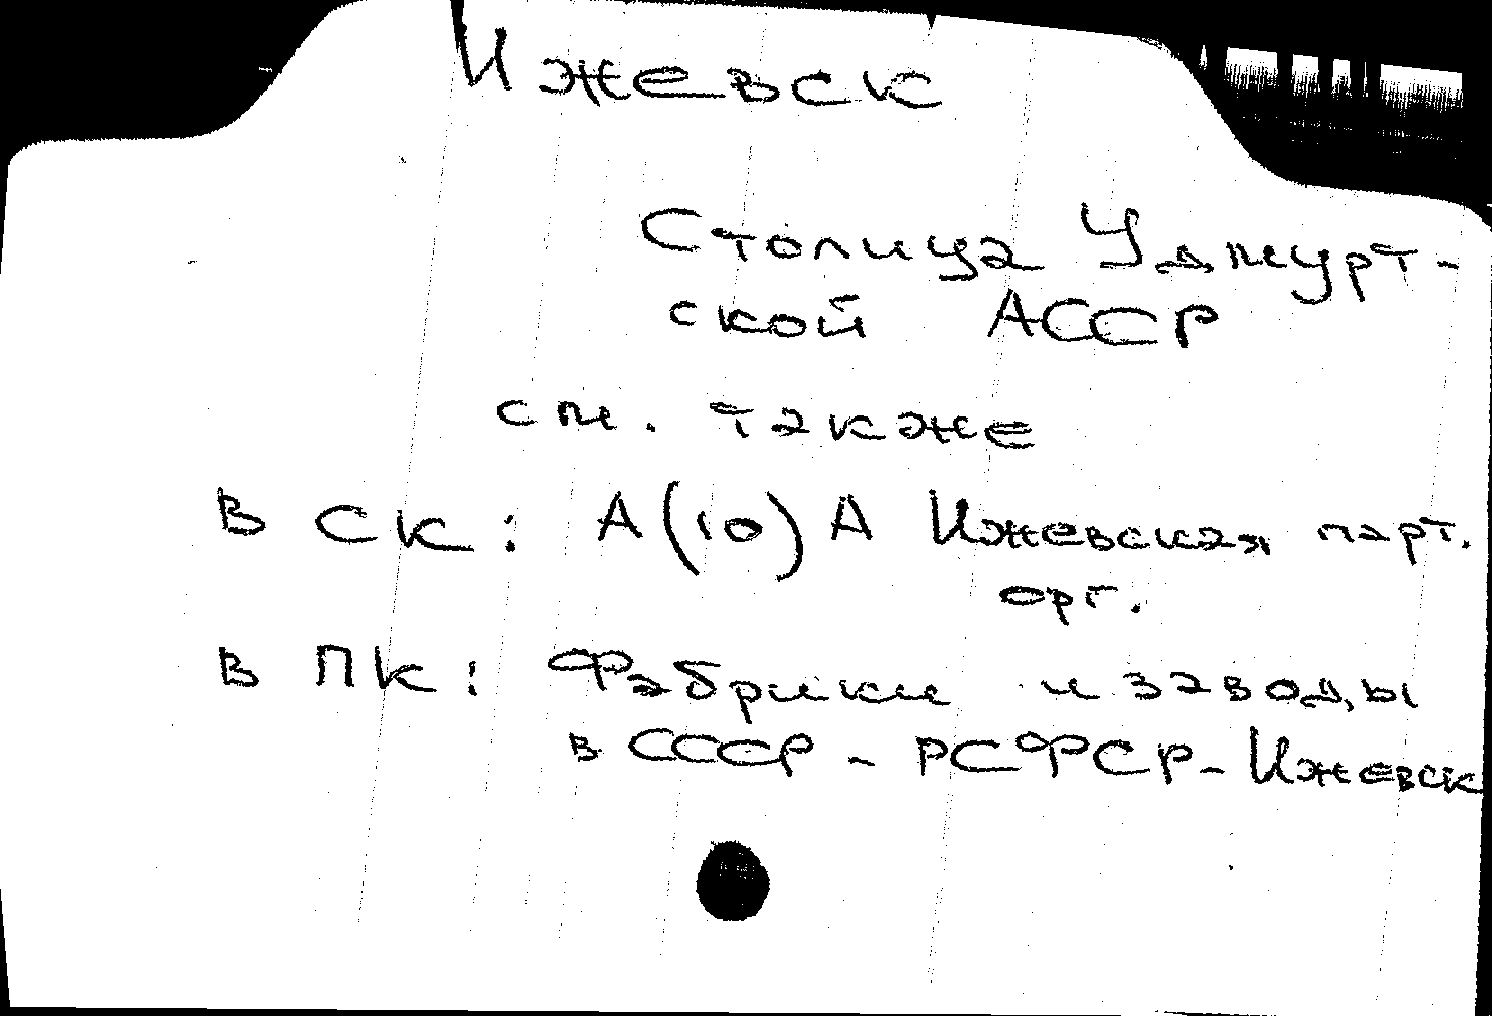 Ижевск
Столица Удмурт-
ской АССР
см. также
в СК: А(10)А Ижевская парт.
орг.
в ПК: Фабрики и заводы
в СССР - РСФСР - Ижевск